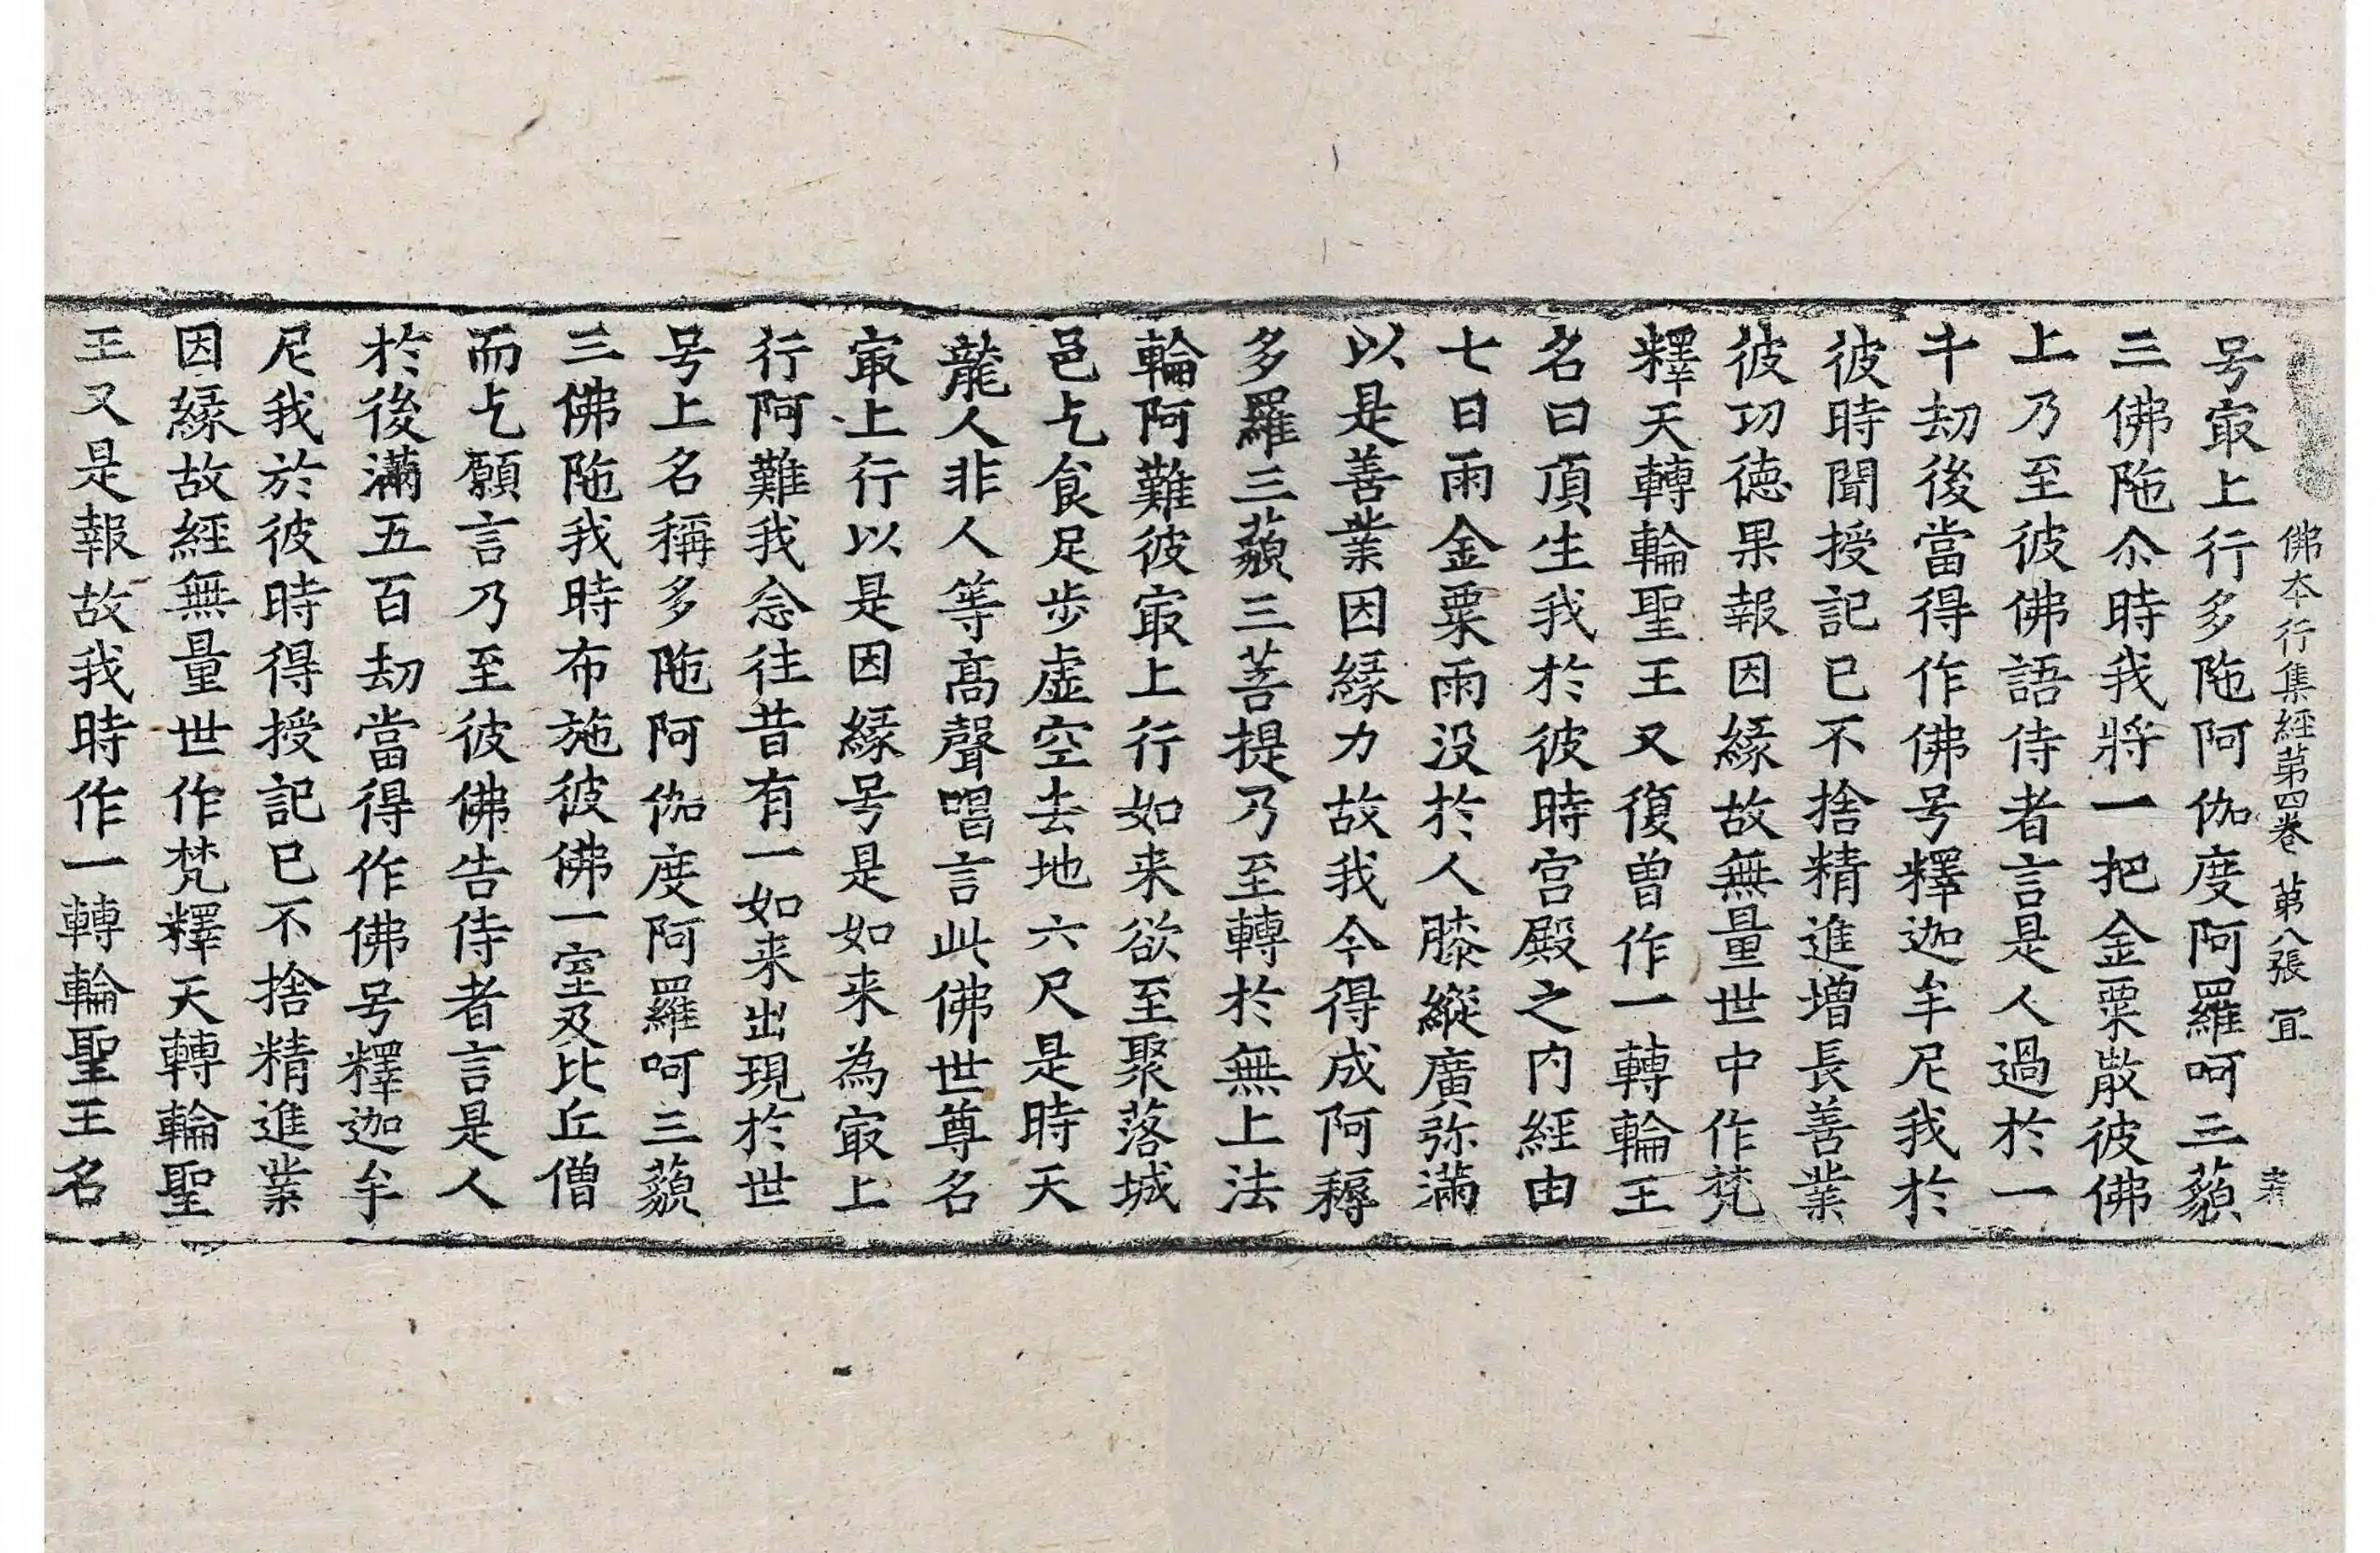 佛本行集經苐四卷 苐八張 冝
号㝡上行多陁阿伽度阿羅呵三藐
三佛陁尒時我將一把金粟散彼佛
上乃至彼佛語侍者言是人過於一
千劫後當得作佛号釋迦牟尼我於
彼時聞授記已不捨精進增長善業
彼功德果報因緣故無量世中作梵
釋天轉輪聖王又復曽作一轉輪王
名曰頂生我於彼時宮殿之内經由
七日雨金粟雨没於人膝縱廣弥滿
以是善業因緣力故我今得成阿耨
多羅三藐三菩提乃至轉於無上法
輪阿難彼㝡上行如来欲至聚落城
邑乞食足步虛空去地六尺是時天
龍人非人等髙聲唱言此佛世尊名
㝡上行以是因緣号是如来為㝡上
行阿難我念往昔有一如来出現於世
号上名稱多陁阿伽度阿羅呵三藐
三佛陁我時布施彼佛一室及比丘僧
而乞願言乃至彼佛告侍者言是人
於後滿五百劫當得作佛号釋迦牟
尼我於彼時得授記已不捨精進業
因緣故經無量世作梵釋天轉輪聖
王又是報故我時作一轉輪聖王名